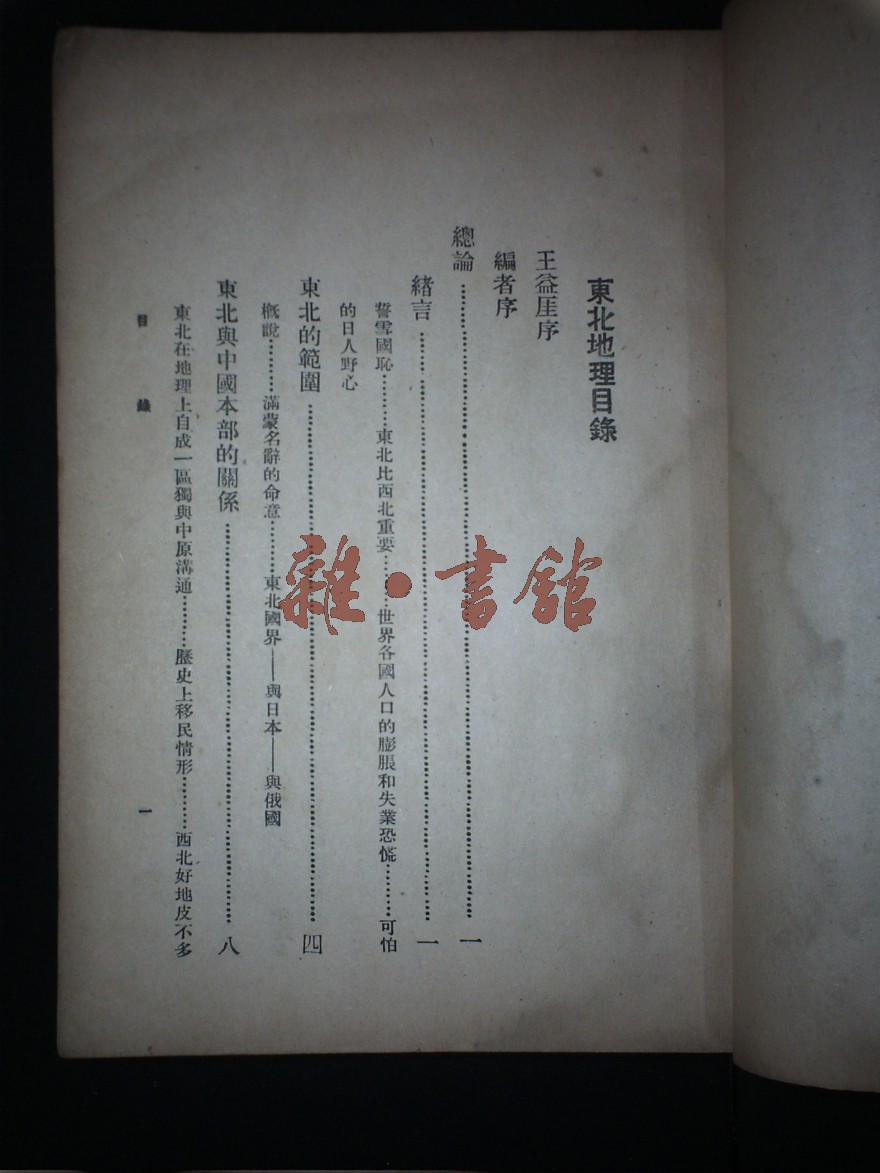 東北地理目錄
王益厓序
編者序
總論…………一
緒言…………一
誓雪國恥………東北比西北重要………世界各國人口的膨脹和失業恐慌………可怕
的日人野心
東北的範圍…………四
概說………滿蒙名辭的命意………東北國界——與日本——與俄國
東北與中國本部的關係…………八
東北在地理上自成一區獨與中原溝通………歷史上移民情形………西北好地皮不多
目錄 一
雜·書館